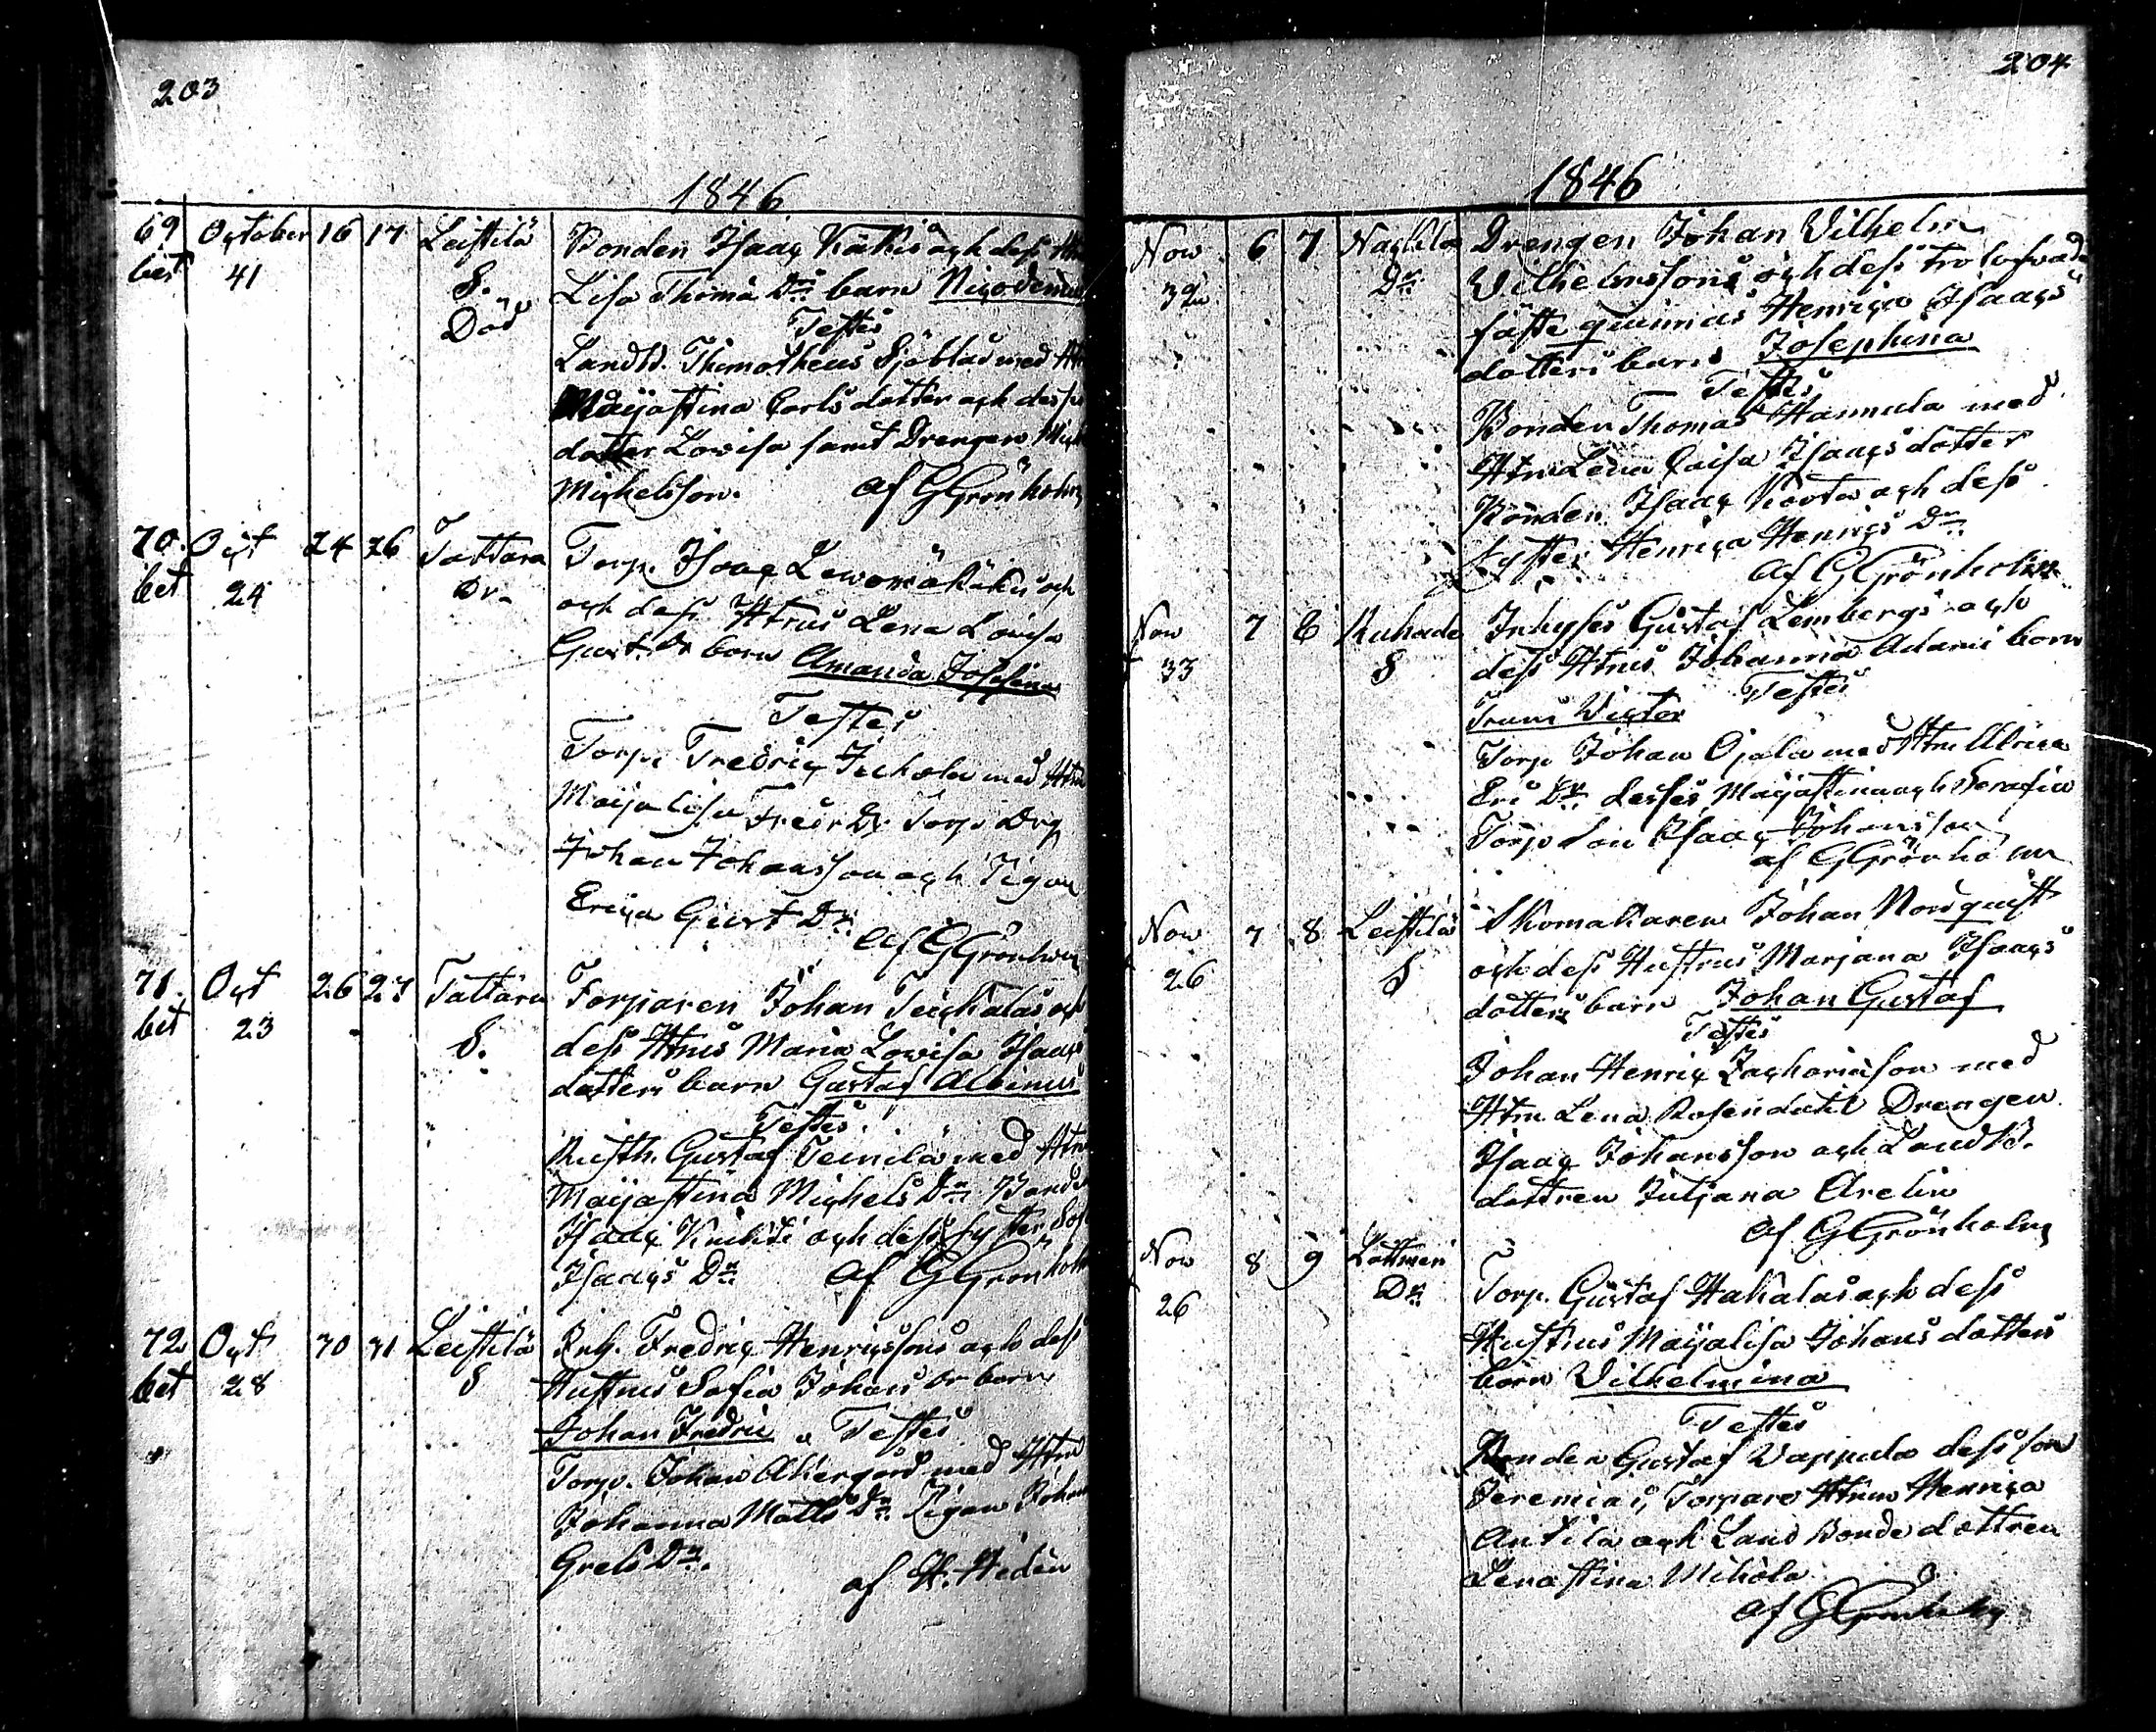 203
1846
69 October 16 17 Leistilä Bonden Isaac Käkis och dess Htr
bet 41 S. Lisa Thoma Dr barn Nicodemus
Död Testes
Landtb. Thimotheus Sjöblad med Htr
Maijastina Carlsdotter och dess
dotter Lovisa samt Drengen Mich
Michelsson. af G Grönholm
70. Oct 24 26 Tattara Torp. Isaac
bet 24 Dr och dess Htrus Lena Lovisa
Gust. Dr barn Amanda Josefina
Testes
Torp. Fredric Juhola med Htru
Maija Lisa Fredr Dr Torp. Drg
Johan Johansson och Pigan
Erica Gust Dr
af G Grönholm
71. Oct 26 27 Tattara Torparen Johan och
bet 23 S. dess Htrus Maria Lovisa Isaacs
dotters barn Gustaf Albinus
Testes
Rusth. Gustaf Teinilä med Htru
Maijastina Michels Dr Bonde
Isaac och dess syster Sof
Isaacs Dr af G Grönholm
72. Oct 30 31 Leistilä Inh. Fredric Henricssons och dess
bet 28 S Hustrus Sofia Johans Dr barn
Johan Fredric Testes
Torp. Johan Åkergård med Htru
Johanna Matts Dr Pigan Johan
Grels Dr.
af H. Heden
204
1846
Nov 6 7 Nackila Drengen Johan Wilhelm
32 Dr Wilhelmssons och dess trolofvade
fäste quinnas Henrica Isaacs
dotters barn Josephina
Testes
Bonden Thomas Hannula med
Htru Lena Caisa Isaacsdotter
Bonden Isaac Knorta och dess
syster Henrica Henrics Dr
af G Grönholm
Nov 7 8 Kuhada Inhyses Gustaf Lembergs och
33 S dess Htrus Johanna Adami barn
Frans Victor Testes
Torp Johan Ojala med Htru Ulrica
Ers Dr desses Maijastina och Serafia
Torp son Isaac Johansson
af G Grönholm
Nov 7 8 Leistilä Skomakaren Johan Nordquist
26 S och dess Hustrus Marjana Isaacs
dotters barn Johan Gustaf
Testes
Johan Henric Zachariasson med
Htru Lena Rosendahl Drengen
Isaac Johansson och Landtb.
dottren Juljana Arelin
af G Grönholm
Nov 8 9 Lattmeri Torp. Gustaf Hakalas och dess
26 Dr Hustrus Maijalisa Johans dotters
barn Wilhelmina
Testes
Bonden Gustaf Wappula dess son
Jeremias, Torpare Htrun Henrica
Antila och Land Bonde dottren
Lenastina Mikola
af G Grönholm